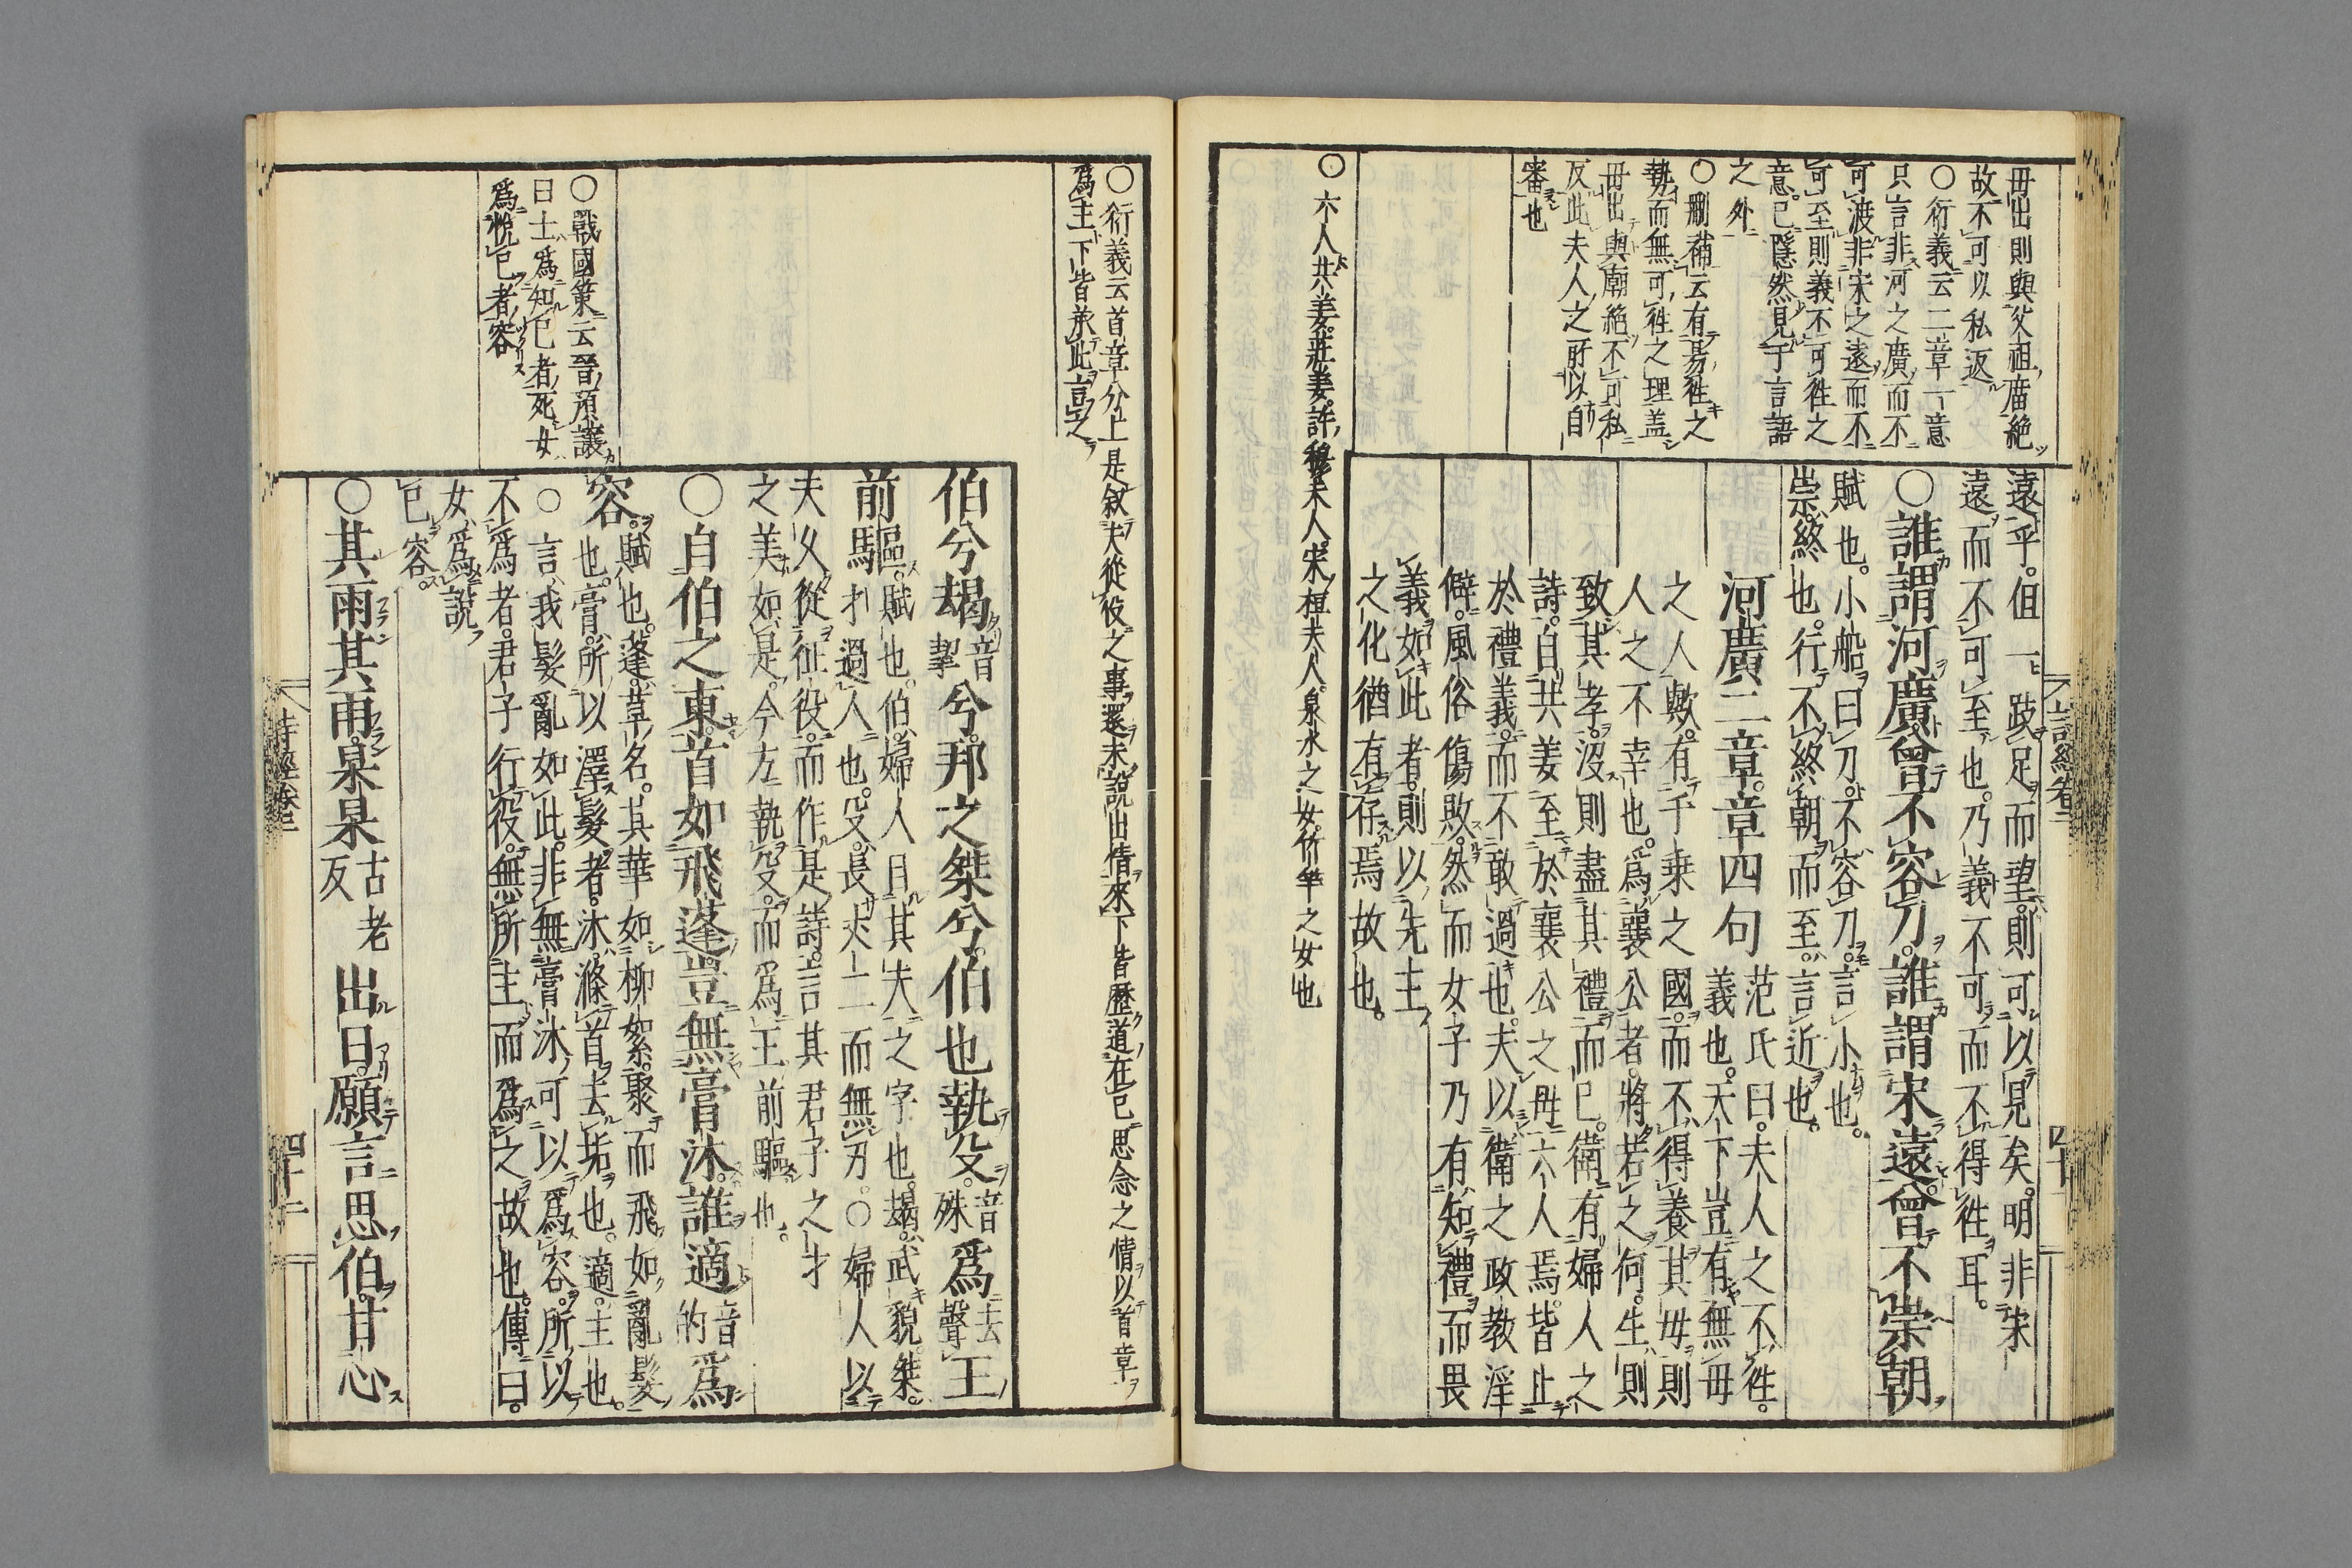 毋出則與父祖廟絶
故不可以私返
○衍義云二章一意
只言非河之廣而不
可渡非宋之遠而不
可至則義不可徃之
意已隱然見于言語
之外
○刪補云有易徃之
勢而無可徃之理盖
毋出與廟絶不可私
反此夫人之所以自
審也
○六人共姜莊姜許穆夫人宋桓夫人泉水之女竹竿之女也
遠乎但一跂足而望則可以見矣明非宋
遠而不可至也乃義不可而不得徃耳
○誰謂河廣曾不容刀誰謂宋遠曾不崇朝
賦也小船曰刀不容刀言小也
崇終也行不終朝而至言近也
河廣二章章四句
范氏曰夫人之不徃
義也天下豈有無毋
之人歟有千乗之國而不得養其毋則
人之不幸也爲襄公者將若之何生則
致其孝沒則盡其禮而已衛有婦人之
詩自共姜至於襄公之毋六人焉皆止
於禮義而不敢過也夫以衛之政教淫
僻風俗傷敗然而女子乃有知禮而畏
義如此者則以先王
之化猶有存焉故也
詩經卷三
四十一
○衍義云首章分上是敘夫從役之事還未説出情來下皆歴道在已思念之情以首章
爲主下皆承此言之
○戰國策云晉預讓
曰士爲知已者死女
爲悦已者容
伯兮朅音挈兮邦之桀兮伯也執殳音殊爲去聲王
前驅賦也伯婦人目其夫之字也朅武貌桀
才過人也殳長丈二而無刃○婦人以
夫久從征役而作是詩言其君子之才
之美如是今方執殳而爲王前驅也
○自伯之東首如飛蓬豈無膏沐誰適音的爲
容賦也蓬草名其華如柳絮聚而飛如亂髮
也膏所以澤髮者沐滌首去垢也適主也
○言我髮亂如此非無膏沐可以爲容所以
不爲者君子行役無所主而爲之故也傳曰
女爲説
已容
○其雨其雨杲杲古老反出日願言思伯甘心
詩經卷三
四十二